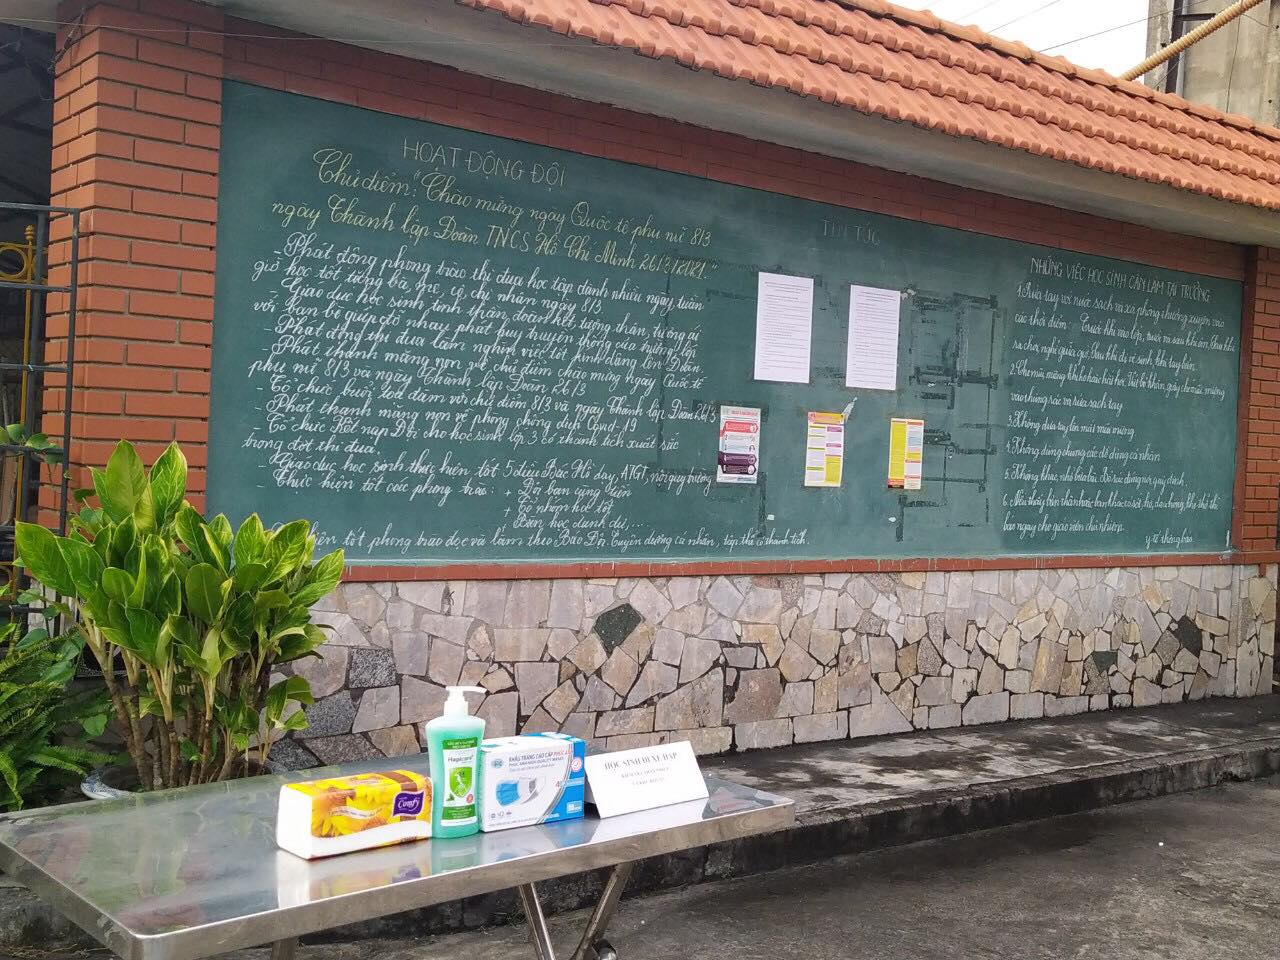 HOẠT ĐỘNG ĐỘI
Chủ điểm: "Chào mừng ngày Quốc tế phụ nữ 8/3
ngày Thành lập Đoàn TNCS Hồ Chí Minh 26/3/2021."
- Phát động phong trào thi đua học tập dành nhiều ngày, tuần
giờ học tốt tặng bà, mẹ, cô, chị nhân ngày 8/3.
- Giáo dục học sinh tinh thần đoàn kết, tương thân, tương ái
với bạn bè giúp đỡ nhau phát huy truyền thống của trường, lớp
- Phát động thi đua làm nghìn việc tốt kính dâng lên Đoàn.
- Phát thanh măng non về chủ điểm chào mừng ngày Quốc tế
phụ nữ 8/3 và ngày Thành lập Đoàn 26/3
- Tổ chức buổi toạ đàm với chủ điểm 8/3 và ngày Thành lập Đoàn 26/3
- Phát thanh măng non về phòng chống dịch Covid-19
- Tổ chức Kết nạp Đội cho học sinh lớp 3 có thành tích xuất sắc
trong đợt thi đua.
- Giáo dục học sinh thực hiện tốt 5 điều Bác Hồ dạy, ATGT, nội quy trường
- Thực hiện tốt các phong trào: + Đôi bạn cùng tiến
+ Tổ nhóm học tốt
+ Biển học danh dự,...
tốt phong trào đọc và làm theo Báo Đội. Tuyên dương cá nhân, tập thể có thành tích.
TIN TỨC
NHỮNG VIỆC HỌC SINH CẦN LÀM TẠI TRƯỜNG
1. Rửa tay với nước sạch và xà phòng thường xuyên vào
các thời điểm: Trước khi vào lớp, trước và sau khi ăn, Sau khi
ra chơi, nghỉ giữa giờ, Sau khi đi vệ sinh, khi tay bẩn.
2. Che mũi, miệng khi ho hoặc hắt hơi. Vứt bỏ khăn, giấy che mũi, miệng
vào thùng rác và rửa sạch tay.
3. Không đưa tay lên mắt mũi miệng
4. Không dùng chung các đồ dùng cá nhân
5. Không khạc, nhổ bừa bãi. Bỏ rác đúng nơi quy định.
6. Nếu thấy bản thân hoặc bạn khác có sốt, ho, đau họng, khó thở thì
báo ngay cho giáo viên chủ nhiệm.
y tế thông báo.
Comfy
Hapicare
KHẨU TRANG CAO CẤP PHÚC
HỌC SINH ĐI XE ĐẠP